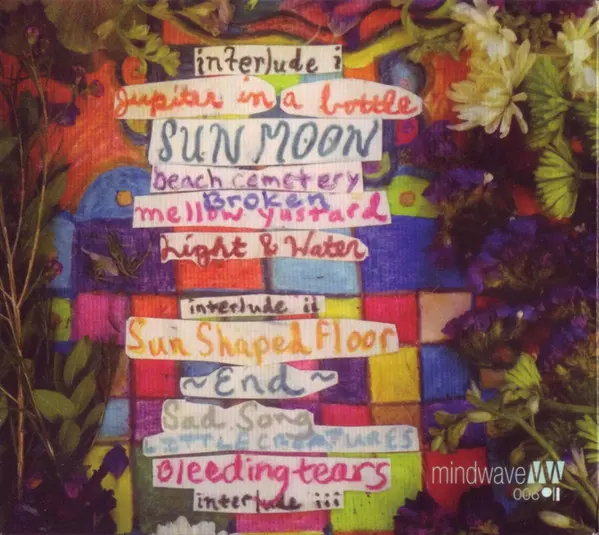 interlude i
Jupiter in a bottle
SUN MOON
beach cemetery
Broken
mellow yustard
Light & Water
interlude ii
Sun Shaped Floor
~End~
Sad Song
LITTLE CREATURES
Bleeding tears
interlude iii
mindwave MW
006